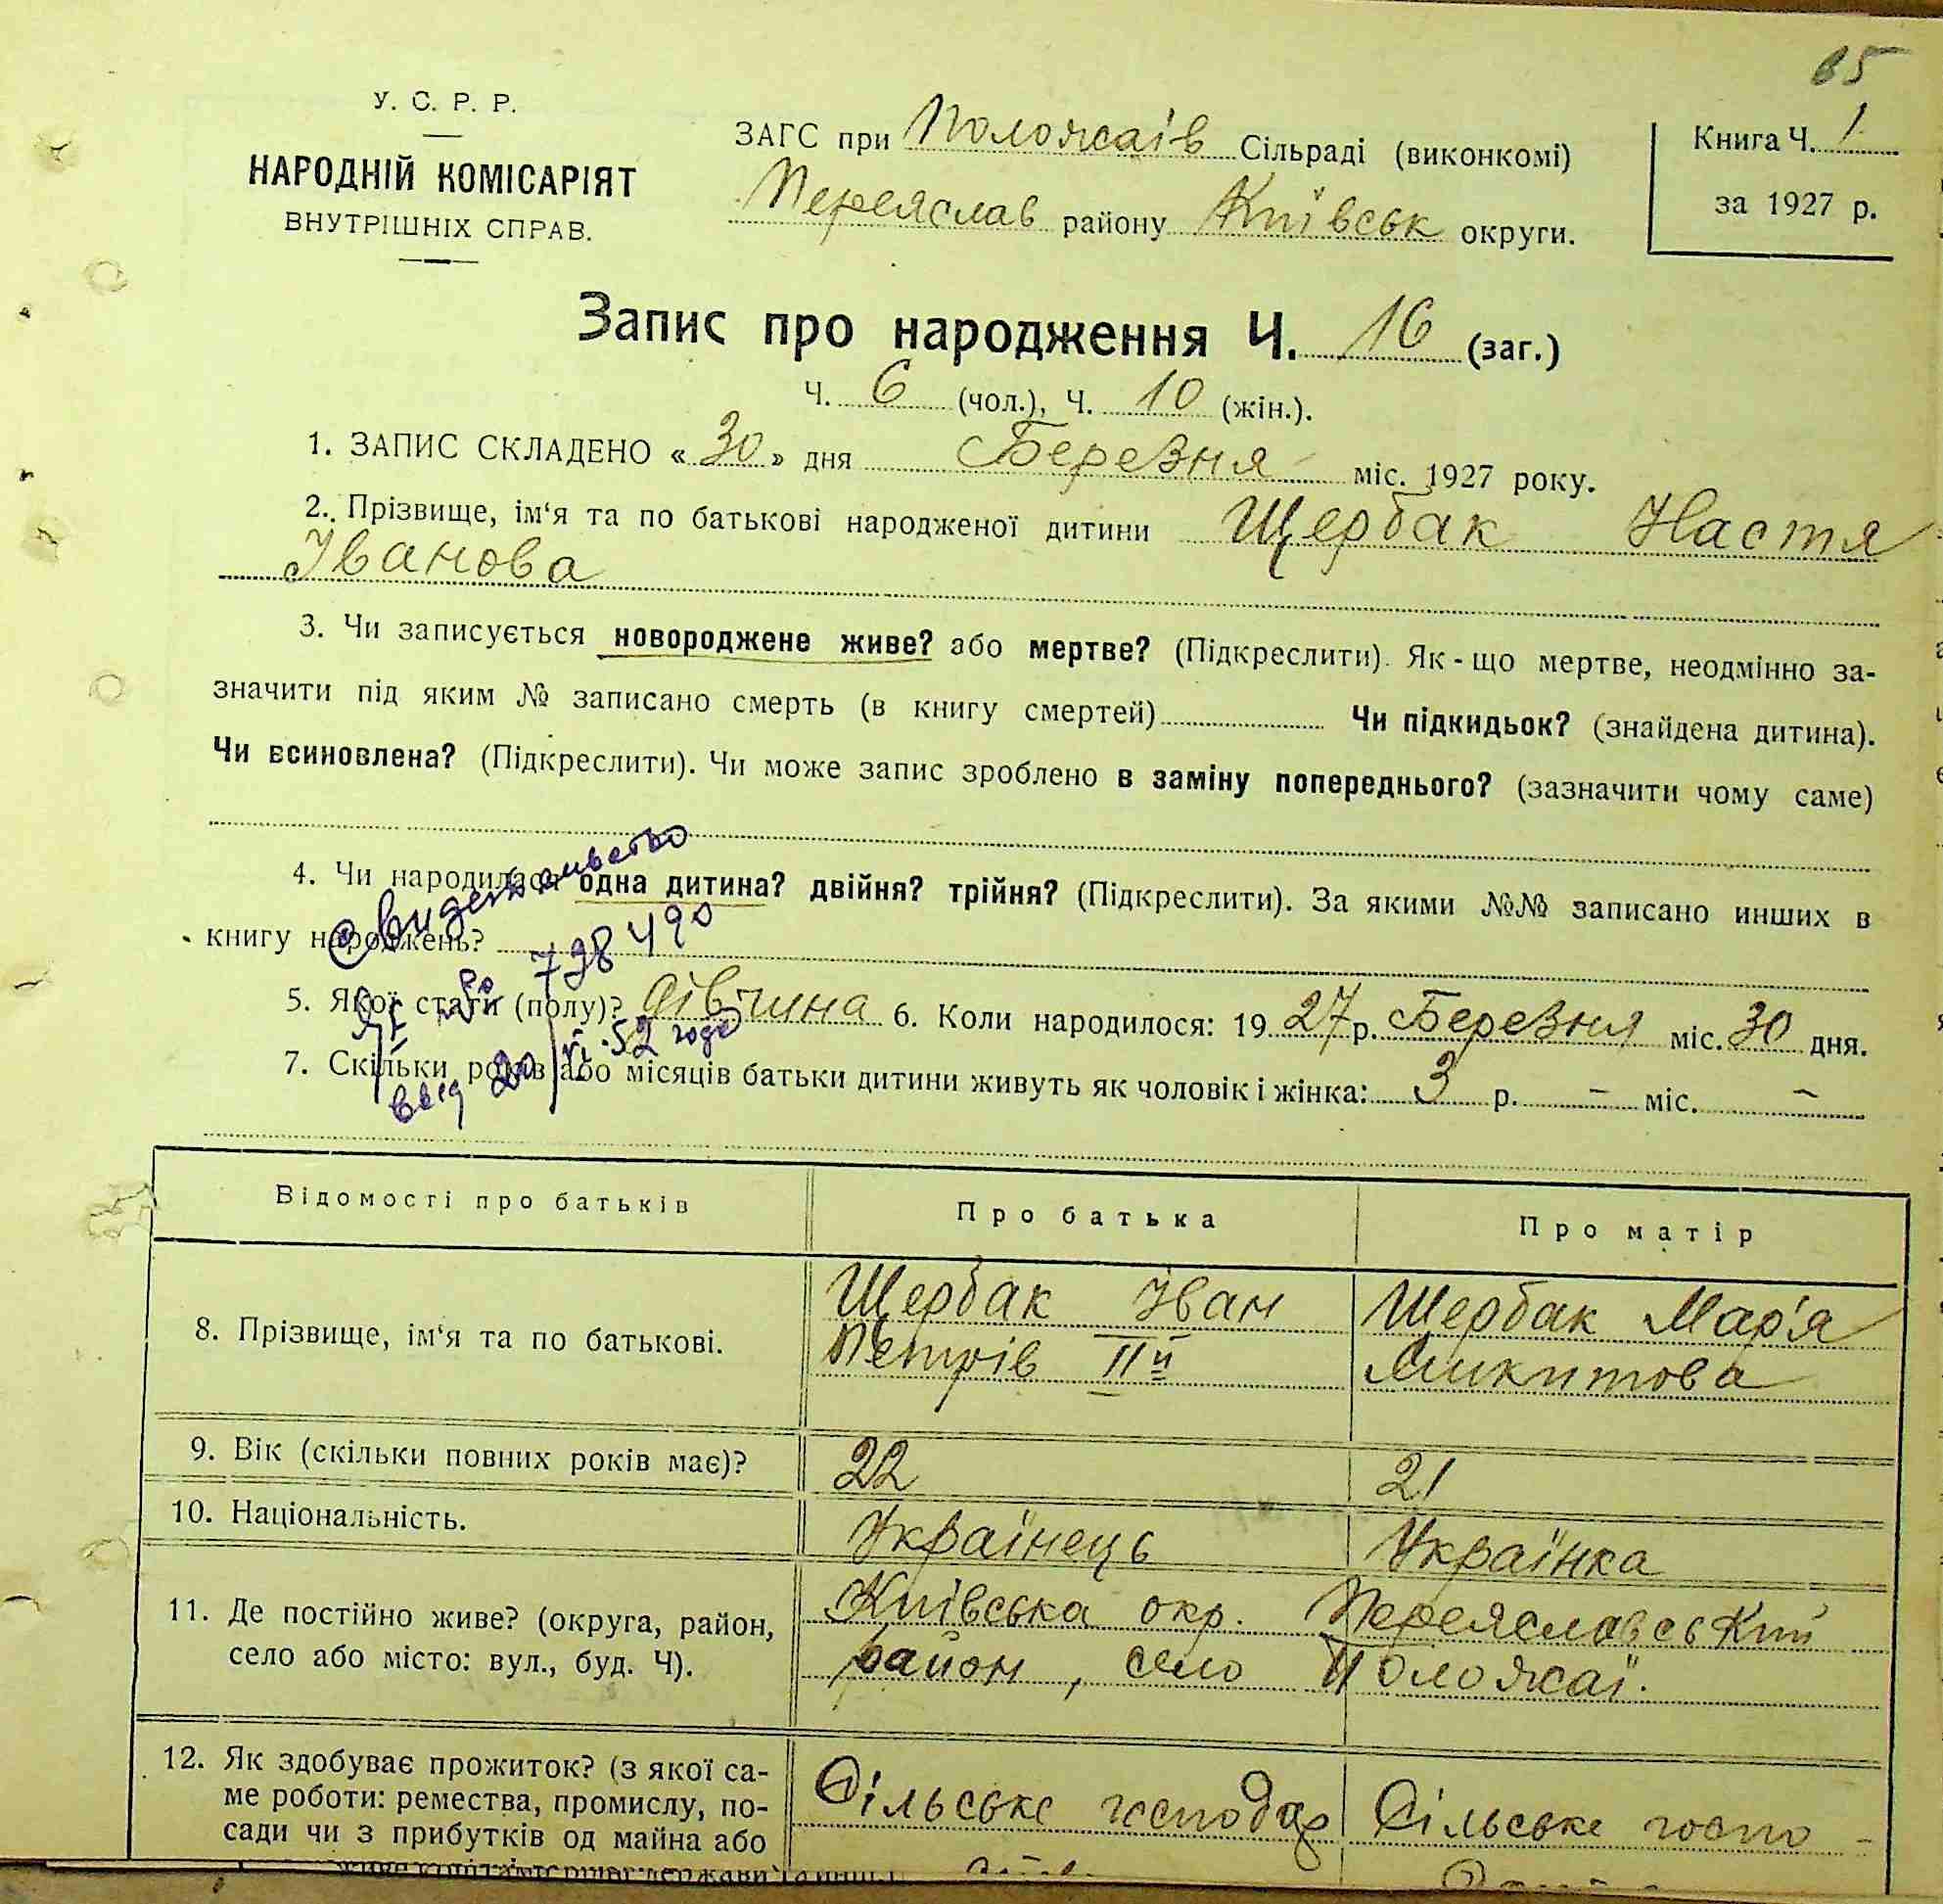 65
У. С. Р. Р.
НАРОДНІЙ КОМІСАРІЯТ
ВНУТРІШНІХ СПРАВ.
ЗАГС при Положаїв Сільраді (виконкомі)
Переяслав району Київськ округи.
Книга Ч. 1
за 1927 р.
Запис про народження Ч. 16 (заг.)
Ч. 6 (чол.), Ч. 10 (жін.).
1. ЗАПИС СКЛАДЕНО «30» дня Березня міс. 1927 року.
2. Прізвище, ім‘я та по батькові народженої дитини Щербак Настя
Іванова
3. Чи записується новороджене живе? або мертве? (Підкреслити). Як-що мертве, неодмінно за-
значити під яким № записано смерть (в книгу смертей) Чи підкидьок? (знайдена дитина).
Чи всиновлена? (Підкреслити). Чи може запис зроблено в заміну попереднього? (зазначити чому саме)
4. Чи народилася одна дитина? двійня? трійня? (Підкреслити). За якими №№ записано инших в
книгу народжень?
5. Якої стати (полу)? дівчина 6. Коли народилося: 1927 р. Березня міс. 30 дня.
7. Скільки років або місяців батьки дитини живуть як чоловік і жінка: 3 р. – міс. –
свидетельство
738490
20/VI-52 года
Відомості про батьків Про батька Про матір
8. Прізвище, ім‘я та по батькові.
Щербак Іван
Петрів ІІй
Щербак Мар'я
Микитова
9. Вік (скільки повних років має)? 22 21
10. Національність. Українець Українка
11. Де постійно живе? (округа, район,
село або місто: вул., буд. Ч).
Київська окр. Переяславський
район, село Положаї.
12. Як здобуває прожиток? (з якої са-
ме роботи: ремества, промислу, по-
сади чи з прибутків од майна або
Сільське господар
Сільське госпо-